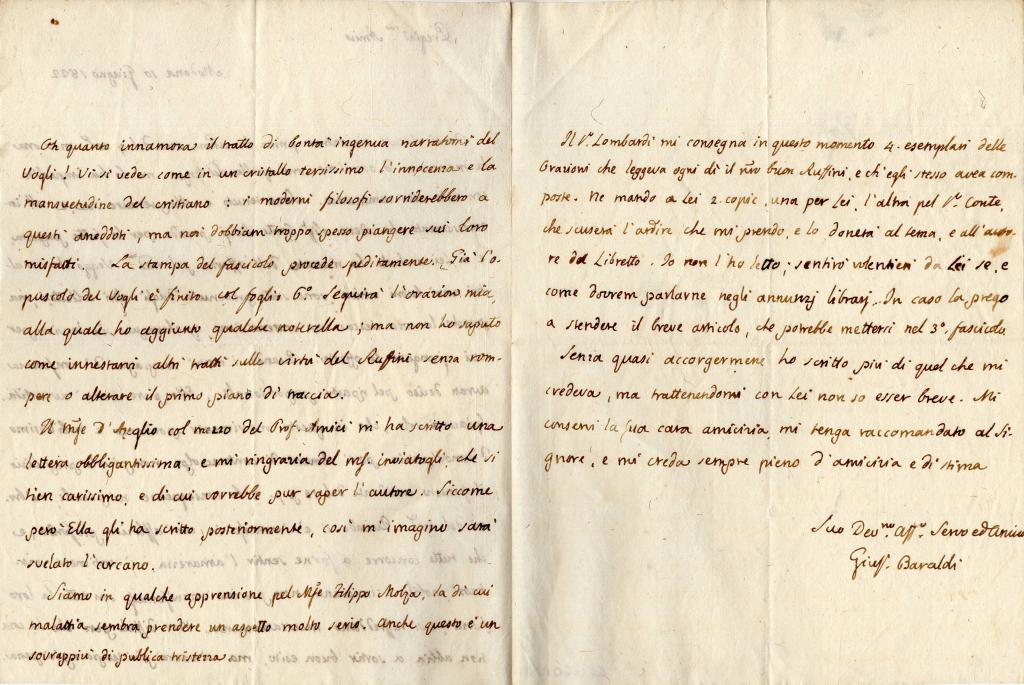 Oh quanto innamora il tratto di bontà ingenua narratomi del
Vogli! Vi si vede come in un cristallo tersissimo l'innocenza e la
mansuetudine del cristiano: i moderni filosofi sorriderebbero a
questi aneddoti, ma noi dobbiam troppo spesso piangere sui loro
misfatti. La stampa del fascicolo procede speditamente. Già l'o-
puscolo del Vogli è finito col foglio 6.º Seguirà l'orazion mia,
alla quale ho aggiunto qualche noterella; ma non ho saputo
come innestarvi altri tratti sulle virtù del Ruffini senza rom-
pere o alterare il primo piano di traccia.
Il Mse D'Azeglio col mezzo del Prof. Amici m'ha scritto una
lettera obbligantissima, e mi ringrazia del ms. inviatogli, che si
tien carissimo, e di cui vorrebbe pur saper l'autore. Siccome
però Ella gli ha scritto posteriormente, così m'imagino sarà
svelato l'arcano.
Siamo in qualche apprensione pel Mse Filippo Molza, la di cui
malattia sembra prendere un aspetto molto serio. Anche questo è un
sovrappiù di publica tristezza.
Il Lombardi mi consegna in questo momento 4. esemplari delle
Orazioni che leggeva ogni dì il nro buon Ruffini, e ch'egli stesso avea com-
poste. Ne mando a Lei 2. copie, una per Lei, l'altra pel Conte,
che scuserà l'ardire che mi prendo, e lo donerà al tema, e all'auto-
re del Libretto. Io non l'ho letto; sentirò volentieri da Lei se, e
come dovrem parlarne negli annunzj librarj. In caso la prego
a stendere il breve articolo, che potrebbe mettersi nel 3º. fascicolo
Senza quasi accorgermene ho scritto più di quel che mi
credeva, ma trattenendomi con Lei non so esser breve. Mi
conservi la sua cara amicizia, mi tenga raccomandato al Si-
gnore, e mi creda sempre pieno d'amicizia e di stima
Suo Devmo Affmo Servo ed Amico
Gius. Baraldi